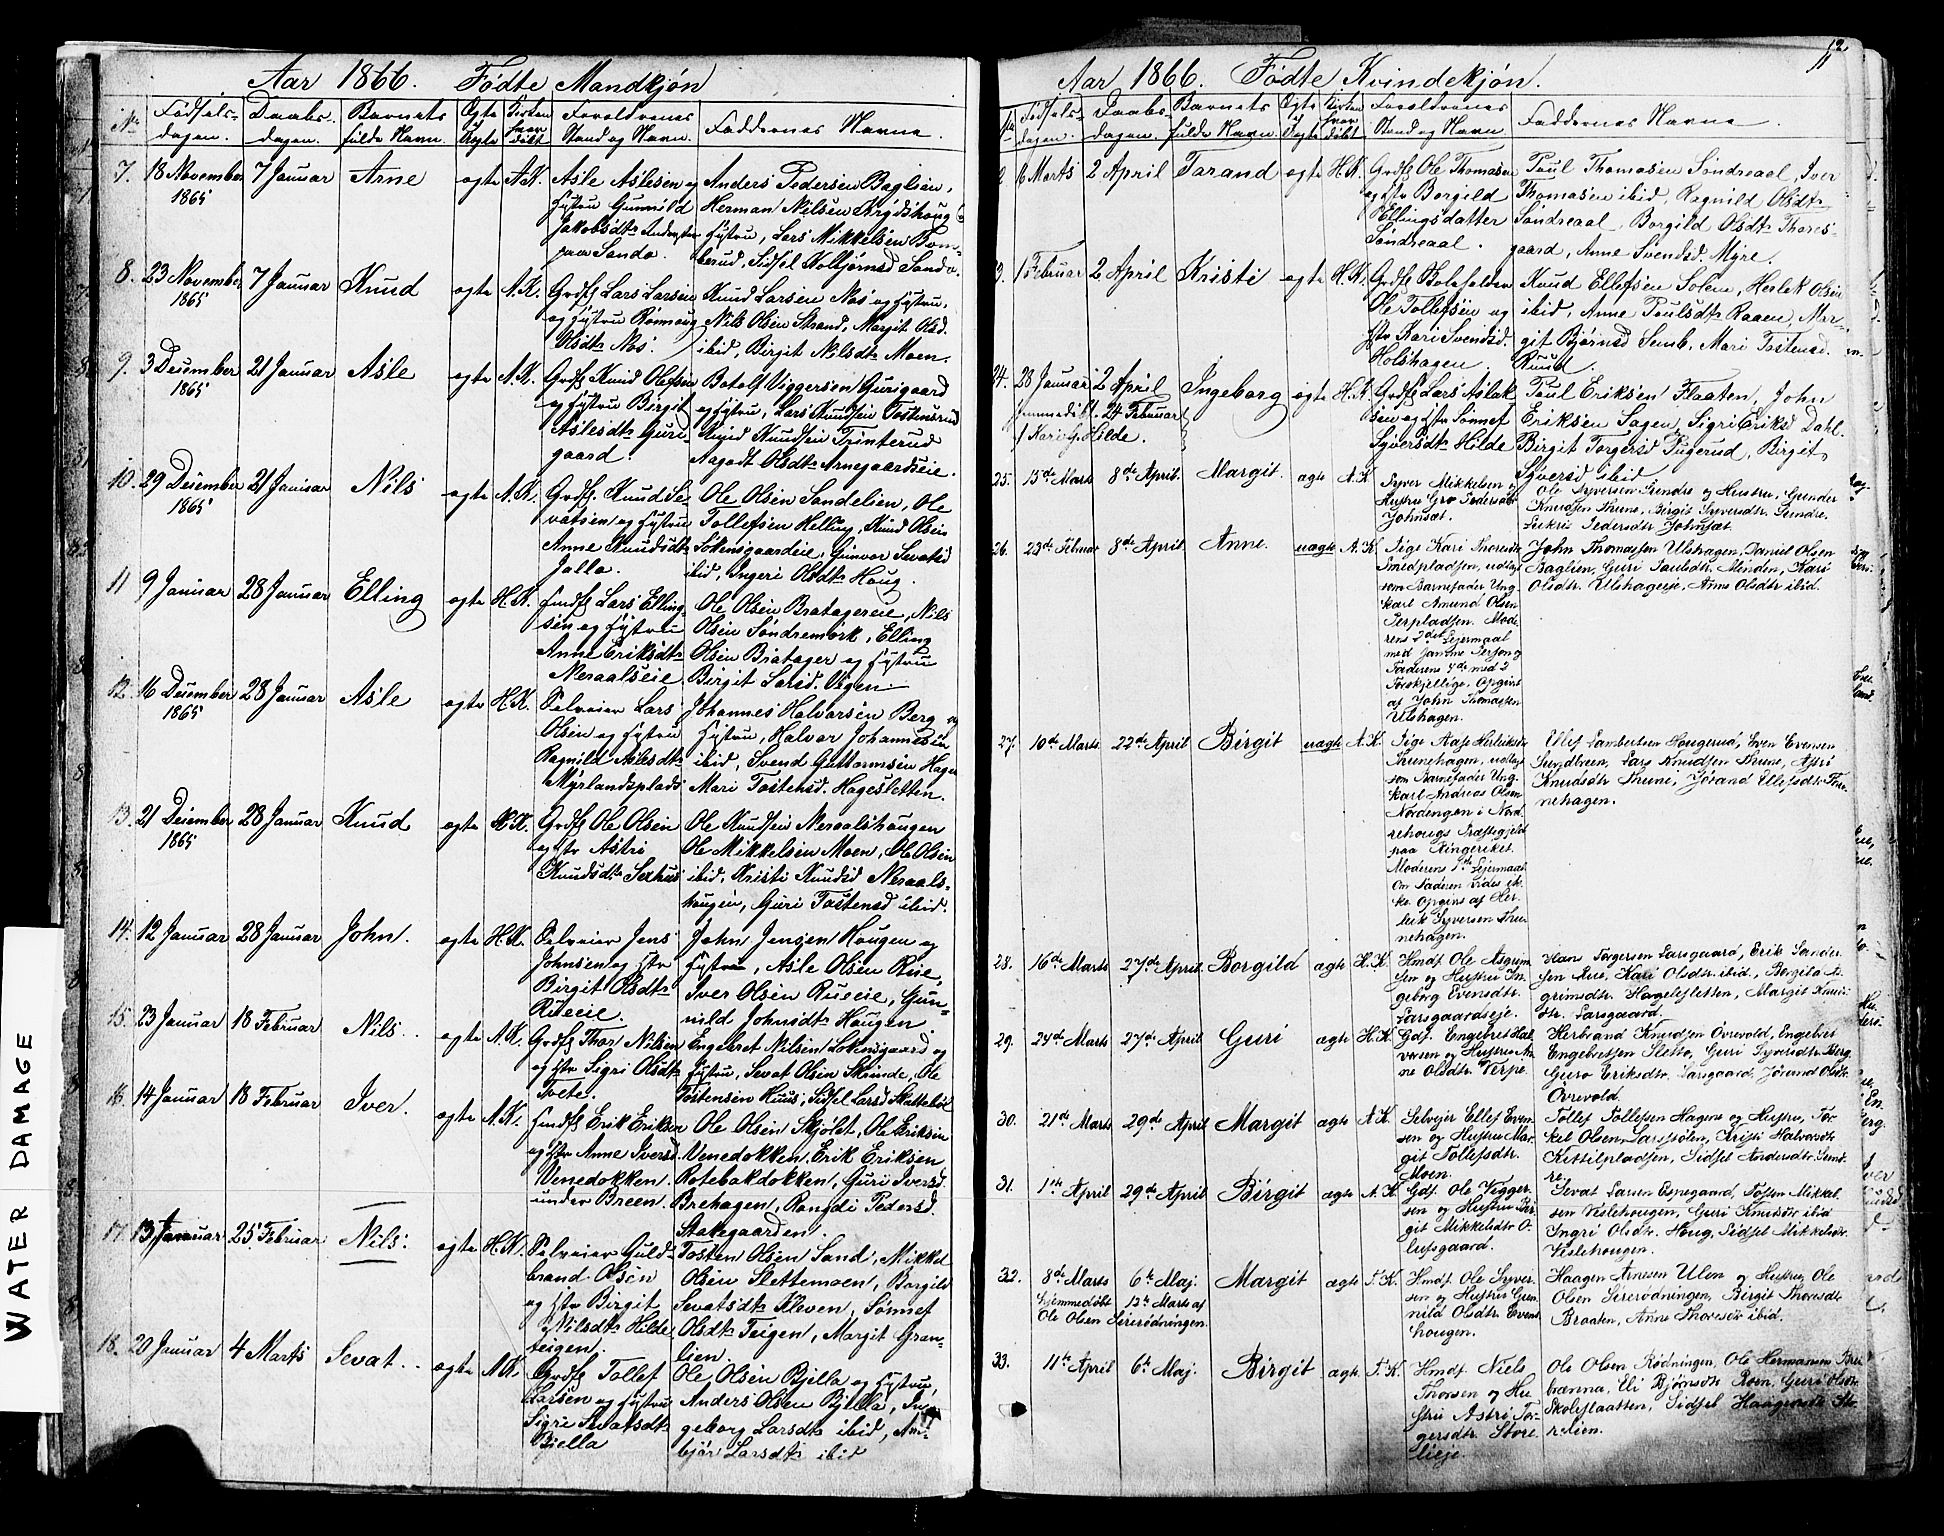 WATER DAMAGE
Aar 1866. Fødte Mandkjøn
No Fødsels-dagen. Daabs-dagen. Barnets fulde Navn. Ægte Uægte Kirken hvor døbt Forældrenes Stand og Navn. Faddernes Navne.
7. 18 November 1865 7 Januar Arne ægte A.K.
Asle Aslesen og
Hustru Gunnild
Jakobsdtr
paa Sando.
Anders Pedersen Baglien,
Herman Nilsen
Hustru, Lars Mikkelsen Bom-
berud, Sidsel Kolbjørnsd Sando.
8. 23 November 1865 7 Januar Knud ægte A.K.
Grdfs Lars Larsen
og Hustru Rønnaug
Olsdtr Næs.
Knud Larsen Næs og Hustru,
Nils Olsen Strand, Margit Olsd.
ibid, Birgit Nilsdtr Moen.
9. 3 December 1865 21 Januar Asle ægte A.K.
Grdfs Knud Olefsen
og Hustru Birgit
Aslesdtr Guri-
gaard.
Botolf Viggersen Gurigaard
og Hustru, Lars Knudsen Tostensrud
Knudsen Trinterud
Aagodt Olsdtr Arnegaardseie.
10. 29 December 1865 21 Januar Nils ægte A.K.
Grdfs. Knud Se-
vatsen og Hustru
Anne Knudsdtr
Jalla.
Ole Olsen Sandelien, Ole
Tollefsen Helling, Knud Olsen
Løkensgaardeie, Gunvor Sevatsd
ibid, Ingeri Olsdtr Houg.
11 9 Januar 28 Januar Elling ægte H.K.
Husfs Lars Elling-
sen og Hustru
Anne Eriksdtr
Neraalseie
Ole Olsen Bratagereie, Nils
Olsen Søndremørk, Elling
Olsen Bratager og Hustru
Birgit Larsd. Vigen
12. 16 December 1865 28 Januar Asle ægte H.K.
Selveier Lars
Olsen og Hustru
Ragnild Aslesdtr
Myrlandsplads
Johannes Halvorsen Berg og
Hustru, Halvor Johannesen
ibid, Svend Guttormsen Hage
Mari Tostensd. Hagesletten.
13. 21 December 1865 28 Januar Knud ægte H.K.
Grdfs Ole Olsen
og Hstr Astri
Knudsdtr Sexhus
Ole Knudsen Neraalshaugen
Ole Mikkelsen Moen, Ole Olsen
ibid, Kristi Knudsd Neraals-
haugen, Guri Tostensd ibid.
14. 12 Januar 28 Januar John. ægte H.K.
Selveier Jens
Johnsen og Hstr
Birgit Olsdtr
Rueeie.
John Jensen Haugen og
Hustru, Asle Olsen Rue,
Iver Olsen Rueeie, Gun-
nild Johnsdtr Haugen.
15. 23 Januar 18 Februar Nils. ægte A.K.
Grdfs Thor Nilsen
og Hstr Sigri Olsdtr
Tvete.
Engebret Nilsen Løkensgaard og
Hustru, Sevat Olsen Skrinde, Ole
Tostensen Huus, Sidsel Larsd Skattebøl
16. 14 Januar 18 Februar Iver. ægte A.K.
Husfs Erik Eriksen
og Hstr Anne Iversd.
Venedokken.
under Breen.
Ole Olsen Skjølet, Ole Eriksen
Venedokken, Erik Eriksen
Rotebakdokken, Guri Iversd.
Brehagen, Rangdi Pedersd.
Stakegaarden.
17. 13 Januar 25 Februar Nils. ægte H.K.
Selveier Guld-
brand Olsen
og Hstr Birgit
Nilsdtr Hilde
teigen.
Tosten Olsen Sand, Mikkel
Olsen Slettemoen, Borgild
Sevatsdtr Kleven, Sønnef
Olsdtr Teigen, Margit Gran-
lien.
18. 20 Januar 4 Marts Sevat. ægte A.K.
Grdfs Tollef
Larsen og Hustru
Sigri Sevatsdtr
Bjella
Ole Olsen Bjella og Hustru,
Anders Olsen Bjella, In-
geborg Larsdtr ibid, Am-
bjør Larsdtr ibid
12
Aar 1866. Fødte Kvindekjøn.
No Fødsels-dagen. Daabs-dagen. Barnets fulde Navn. Ægte Uægte Kirken hvor døbt Forældrenes Stand og Navn Faddernes Navne
2 6 Marts 2 April Tarand ægte H.K.
Grdfs Ole Thomasen
og Hstr Borgild
Ellingsdatter
Søndreaal.
Paul Thomasen Søndreaal, Iver
Thomasen ibid, Ragnild Olsdtr
Søndreaal, Borgild Olsdtr Thores-
gaard, Anne Svendsd. Myre.
3. 1 Februar 2 April Kristi ægte H.K.
Grdfs
Ole Tollefsen og
Hstr Kari Svendsd.
Holshagen.
Knud Ellefsen Solem, Herlek Olsen
ibid, Anne Poulsdtr Raaen, Mar-
git Bjørnsd Semb, Mari Tostensd.
Ruud.
24. 28 Januar 2 April Ingeborg ægte H.K.
hjemmedøbt 24 Februar
f Kari G. Hilde.
Grdfs Lars Aslak-
sen og Hstr Sønnef
Syversdtr Hilde
Paul Eriksen Flaaten, John
Eriksen Sagen, Sigri Eriksd Dahl.
Birgit Torgersd Pugerud, Birgit
Syversd ibid
25. 15de Marts 8de April. Margit. ægte A.K
Syver Mikkelsen og
Hustru Gro Pedersdtr
Johnsæt.
Ole Syversen Sundre og Hustru, Gunder
Knudsen Thune, Birgit Syversdtr. Sundre.
Pedersdtr Johnsæt.
26. 23de Februar 8de April. Anne. uægte A.K
Pige Kari Thoresdtr
Smedpladsen, udlagt
som Barnefader Ung-
karl Amund Olsen
Perpladsen. Mode-
rens 2det Leiermaal
med samme Person og
Faderens 4de med 2
Forskjellige. Opgivet
af John Thomassen
Ulshagen.
John Thomassen Ulshagen, Daniel Olsen
Baglien, Guri Paulsdtr. Menden, Kari
Olsdtr. Ulshageeie, Anne Olsdtr ibid.
27. 10de Marts 22de April Birgit uægte A.K.
Pige Aase Herleiksdtr
Thunehagen, udlagt
som Barnefader Ung-
karl Andreas Olsen
Nordengen i Nord-
rehougs Præstegjeld
paa Ringeriket.
Moderens 1ste Leiermaal
Om Faderen vides ik-
ke. Opgives af Her-
leik Syversen Thu-
nehagen.
Ellef Lambertsen Hougerud, Even Evensen
Sundbreen, Lars Knudsen Thune, Astri
Knudsdtr Thune, Jørand Ellefsdtr Thu-
nehagen.
28. 16de Marts 27de April Borgild ægte H.K
Hmdf Ole Asgrim-
sen og Hustru In-
geborg Evensdtr.
Larsgaardseje.
Hans Torgersen Larsgaard, Erik Sander-
sen Rue, Kari Olsdtr. ibid, Borgild As-
grimsdtr. Hagelesletten, Margit Knuds-
dtr. Larsgaard.
29. 24de Marts 27de April Guri ægte H.K.
Gdf. Engebret Hal-
vorsen og Hustru An-
ne Olsdtr. Verpe.
Herbrand Knudsen Ørevold, Engebret
Engebretsen Sletto, Guri Syversdtr Berg,
Guro Eriksdtr. Larsgaard, Jørand Olsdtr.
Øvrevold.
30. 21de Marts 29de April Margit ægte A.K
Selvejer Ellef Even-
sen og Hustru Mar-
git Tollefsdtr.
Moen.
Tollef Tollefsen Hagene og Hustru, Tor-
kel Olsen Larsstølen, Kristi Halvorsdtr
Kittilpladsen, Sidsel Andersdtr. Sund-
re.
31. 1ste April 29de April Birgit ægte A.K
Gdf. Ole Vigger-
sen og Hustru Bir-
git Mikkelsdtr O-
lufsgaard.
Sevat Larsen Espegaard, Tosten Mikkel-
sen Veslehougen, Guri Knudsdtr ibid
Ingri Olsdtr. Houg, Sidsel Mikkelsdtr.
Veslehougen.
32. 8de Marts 6te Maj. Margit ægte T.K.
hjemmedøbt 13de Marts af
Ole Olsen Sererødningen.
Hmdf. Ole Syver-
sen og Hustru Gun-
nild Olsdtr. Evens-
hougen.
Haagen Arnesen Ulen og Hustru, Ole
Olsen Sererødningen, Birgit Thoresdtr
Braaten, Anne Thoresdtr ibid.
33. 11te April 6te Maj. Birgit ægte T.K
Hmdf. Niels
Thorsen og Hu-
stru Astri Tor-
gersdtr. Store-
lieje.
Ole Olsen Rødningen, Ole Hermansen Brei-
brænna, Eli Bjørnsdtr Roen, Guri Olsdtr
Skoleflaatten, Sidsel Haagensdtr Sto-
relien.